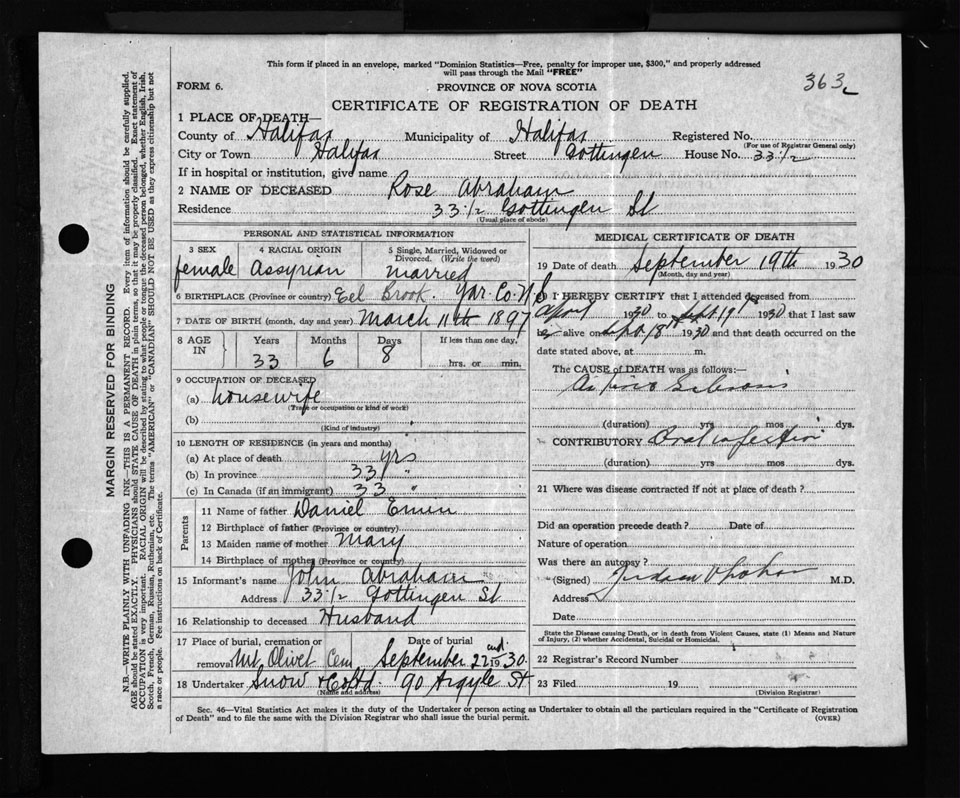 This form if placed in an envelope, marked "Dominion Statistics—Free, penalty for improper use, $300," and properly addressed
will pass through the Mail "FREE"
363
FORM 6.
PROVINCE OF NOVA SCOTIA
CERTIFICATE OF REGISTRATION OF DEATH
1 PLACE OF DEATH—
County of Halifax Municipality of Halifax Registered No.
(For use of Registrar General only)
City or Town Halifax Street Gottingen House No. 33 1/2
If in hospital or institution, give name
2 NAME OF DECEASED Rose Abraham
Residence 33 1/2 Gottingen St
(Usual place of abode)
PERSONAL AND STATISTICAL INFORMATION
3 SEX 4 RACIAL ORIGIN 5 Single, Married, Widowed or
Divorced. (Write the word)
female Assyrian married
6 BIRTHPLACE (Province or country) Eel Brook. Yar. Co. N.S
7 DATE OF BIRTH (month, day and year) March 11th 1897
8 AGE IN Years Months Days If less than one day,
33 6 8 hrs. or min.
9 OCCUPATION OF DECEASED
(a) housewife
(Trade or occupation or kind of work)
(b)
(Kind of industry)
10 LENGTH OF RESIDENCE (in years and months)
(a) At place of death yrs
(b) In province 33 "
(c) In Canada (if an immigrant) 33 "
Parents
11 Name of father Daniel Emin
12 Birthplace of father (Province or country)
13 Maiden name of mother Mary
14 Birthplace of mother (Province or country)
15 Informant's name John Abraham
Address 33 1/2 Gottingen St
16 Relationship to deceased Husband
17 Place of burial, cremation or Date of burial
removal Mt. Olivet Cem September 22nd 1930.
18 Undertaker Snow & Co Ltd. 90 Argyle St
(Name and address)
MEDICAL CERTIFICATE OF DEATH
19 Date of death September 19th 1930
(Month, day and year)
I HEREBY CERTIFY that I attended deceased from
April 1930 to Sept. 19 1930 that I last saw
alive on Sept. 18th 1930 and that death occurred on the
date stated above, at m.
The CAUSE OF DEATH was as follows:—
(duration) yrs mos dys.
CONTRIBUTORY Oral infection
(duration) yrs mos dys.
21 Where was disease contracted if not at place of death?
Did an operation precede death? Date of
Nature of operation
Was there an autopsy?
(Signed) M.D.
Address
Date
State the Disease causing Death, or in death from Violent Causes, state (1) Means and Nature
of Injury, (2) whether Accidental, Suicidal or Homicidal.
22 Registrar's Record Number
23 Filed 19
(Division Registrar)
Sec. 46—Vital Statistics Act makes it the duty of the Undertaker or person acting as Undertaker to obtain all the particulars required in the "Certificate of Registration
of Death" and to file the same with the Division Registrar who shall issue the burial permit. (OVER)
MARGIN RESERVED FOR BINDING
N.B.—WRITE PLAINLY WITH UNFADING INK—THIS IS A PERMANENT RECORD. Every item of information should be carefully supplied.
AGE should be stated EXACTLY. PHYSICIANS should STATE CAUSE OF DEATH in plain terms, so that it may be properly classified. Exact statement of
OCCUPATION is very important. RACIAL ORIGIN will be described by stating to what people or tongue the deceased person belonged, whether English, Irish,
Scotch, French, German, Russian, Ruthenian, etc. The terms "AMERICAN" or "CANADIAN" SHOULD NOT BE USED as they express citizenship but not
a race or people. Fee instructions on back of Certificate.